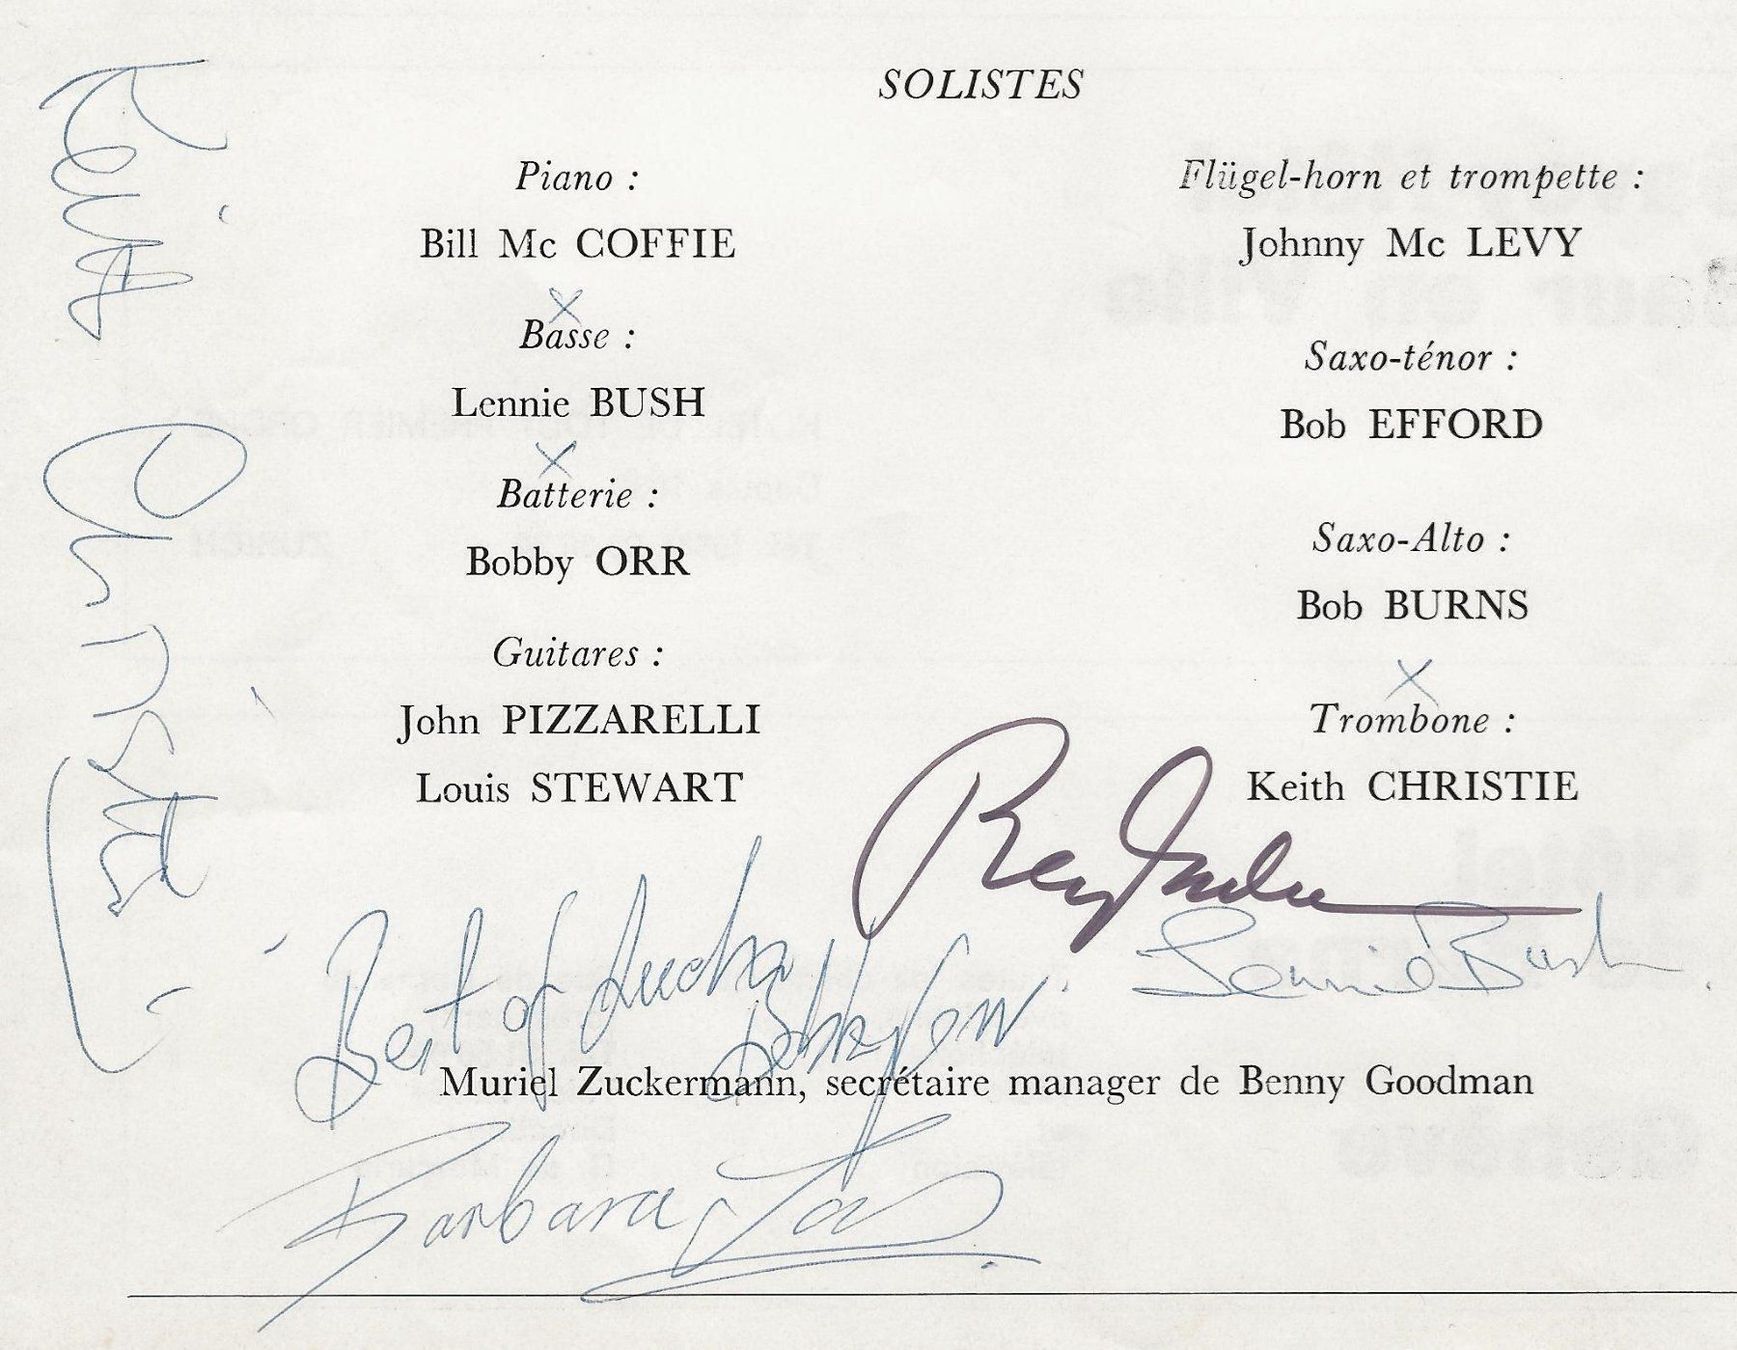 SOLISTES
Piano :
Bill Mc COFFIE
Basse :
Lennie BUSH
Batterie :
Bobby ORR
Guitares :
John PIZZARELLI
Louis STEWART
Flügel-horn et trompette :
Johnny Mc LEVY
Saxo-ténor :
Bob EFFORD
Saxo-Alto :
Bob BURNS
Trombone :
Keith CHRISTIE
Keith Christie
Best of Lucka
Bobby Orr
Lennie Bush
Muriel Zuckermann, secrétaire manager de Benny Goodman
Barbara